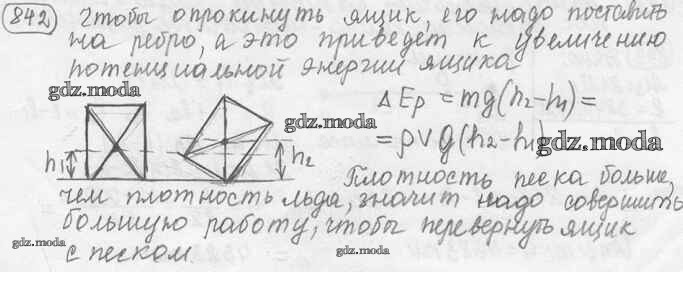 842) Чтобы опрокинуть ящик, его надо поставить
на ребро, а это приведет к увеличению
потенциальной энергии ящика
gdz.moda
gdz.moda
ΔEp = mg(h2-h1) =
= ρVg(h2-h1)
gdz.moda
h1
h2
Плотность песка больше,
чем плотность льда, значит надо совершить
большую работу, чтобы перевернуть ящик
с песком.
gdz.moda
gdz.moda